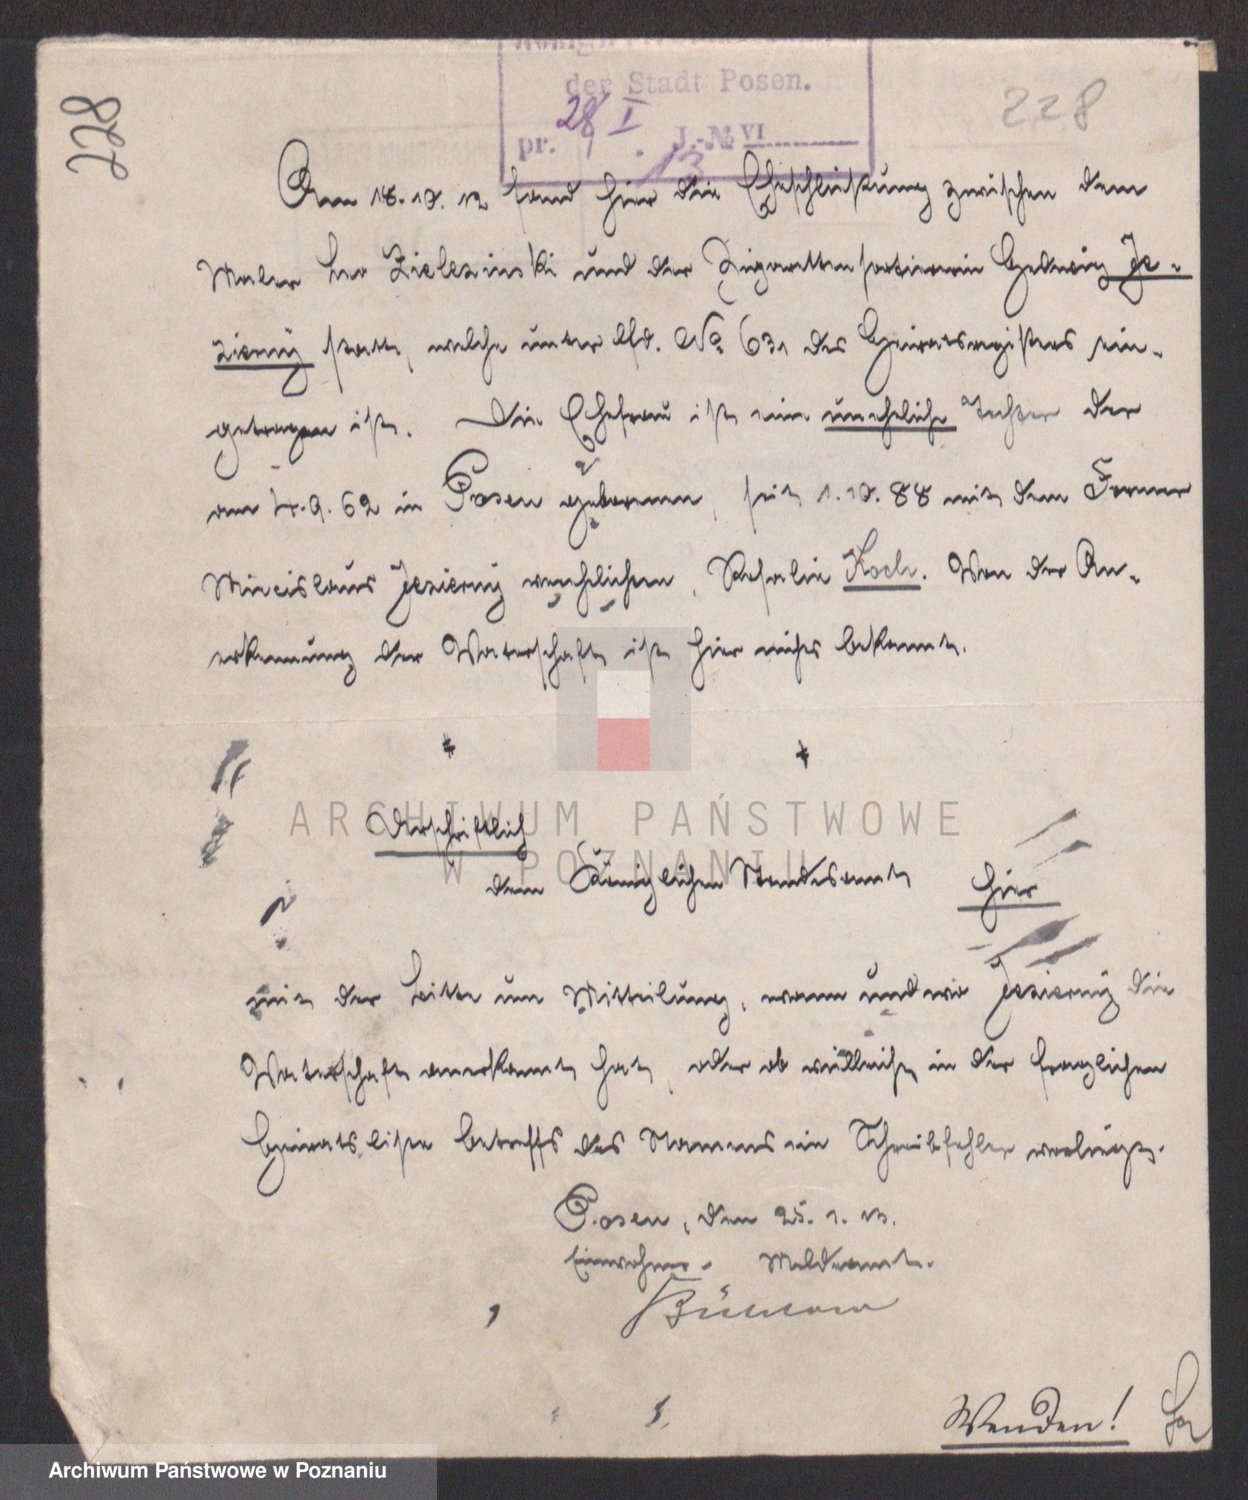 228
der Stadt Posen.
28/I
pr. J.-№ VI
13.
228
Am 18.10.12 fand hier die Eheschließung zwischen dem
Maler Leo Zielezinski und der Zigarettensortiererin Hedwig Je-
zierny statt, welche unter lfd. No 631 des Heiratsregisters ein-
getragen ist. Die Ehefrau ist eine uneheliche Tochter der
am 4.9.62 in Posen geborenen, seit 1.10.88 mit dem Former
Miecislaus Jezierny verehelichten, Rosalie Koch. Von der An-
erkennung der Vaterschaft ist hier nichts bekannt.
Urschriftlich
dem Königlichen Standesamt hier
mit der Bitte um Mitteilung, wann und wo Jezierny die
Vaterschaft anerkannt hat, oder ob vielleicht in der fraglichen
Heiratsliste betreffs des Namens ein Schreibfehler vorliegt.
Posen, den 25.1.13.
Einwohner-Meldeamt.
Wenden!
ARCHIWUM PAŃSTWOWE
W POZNANIU
Archiwum Państwowe w Poznaniu